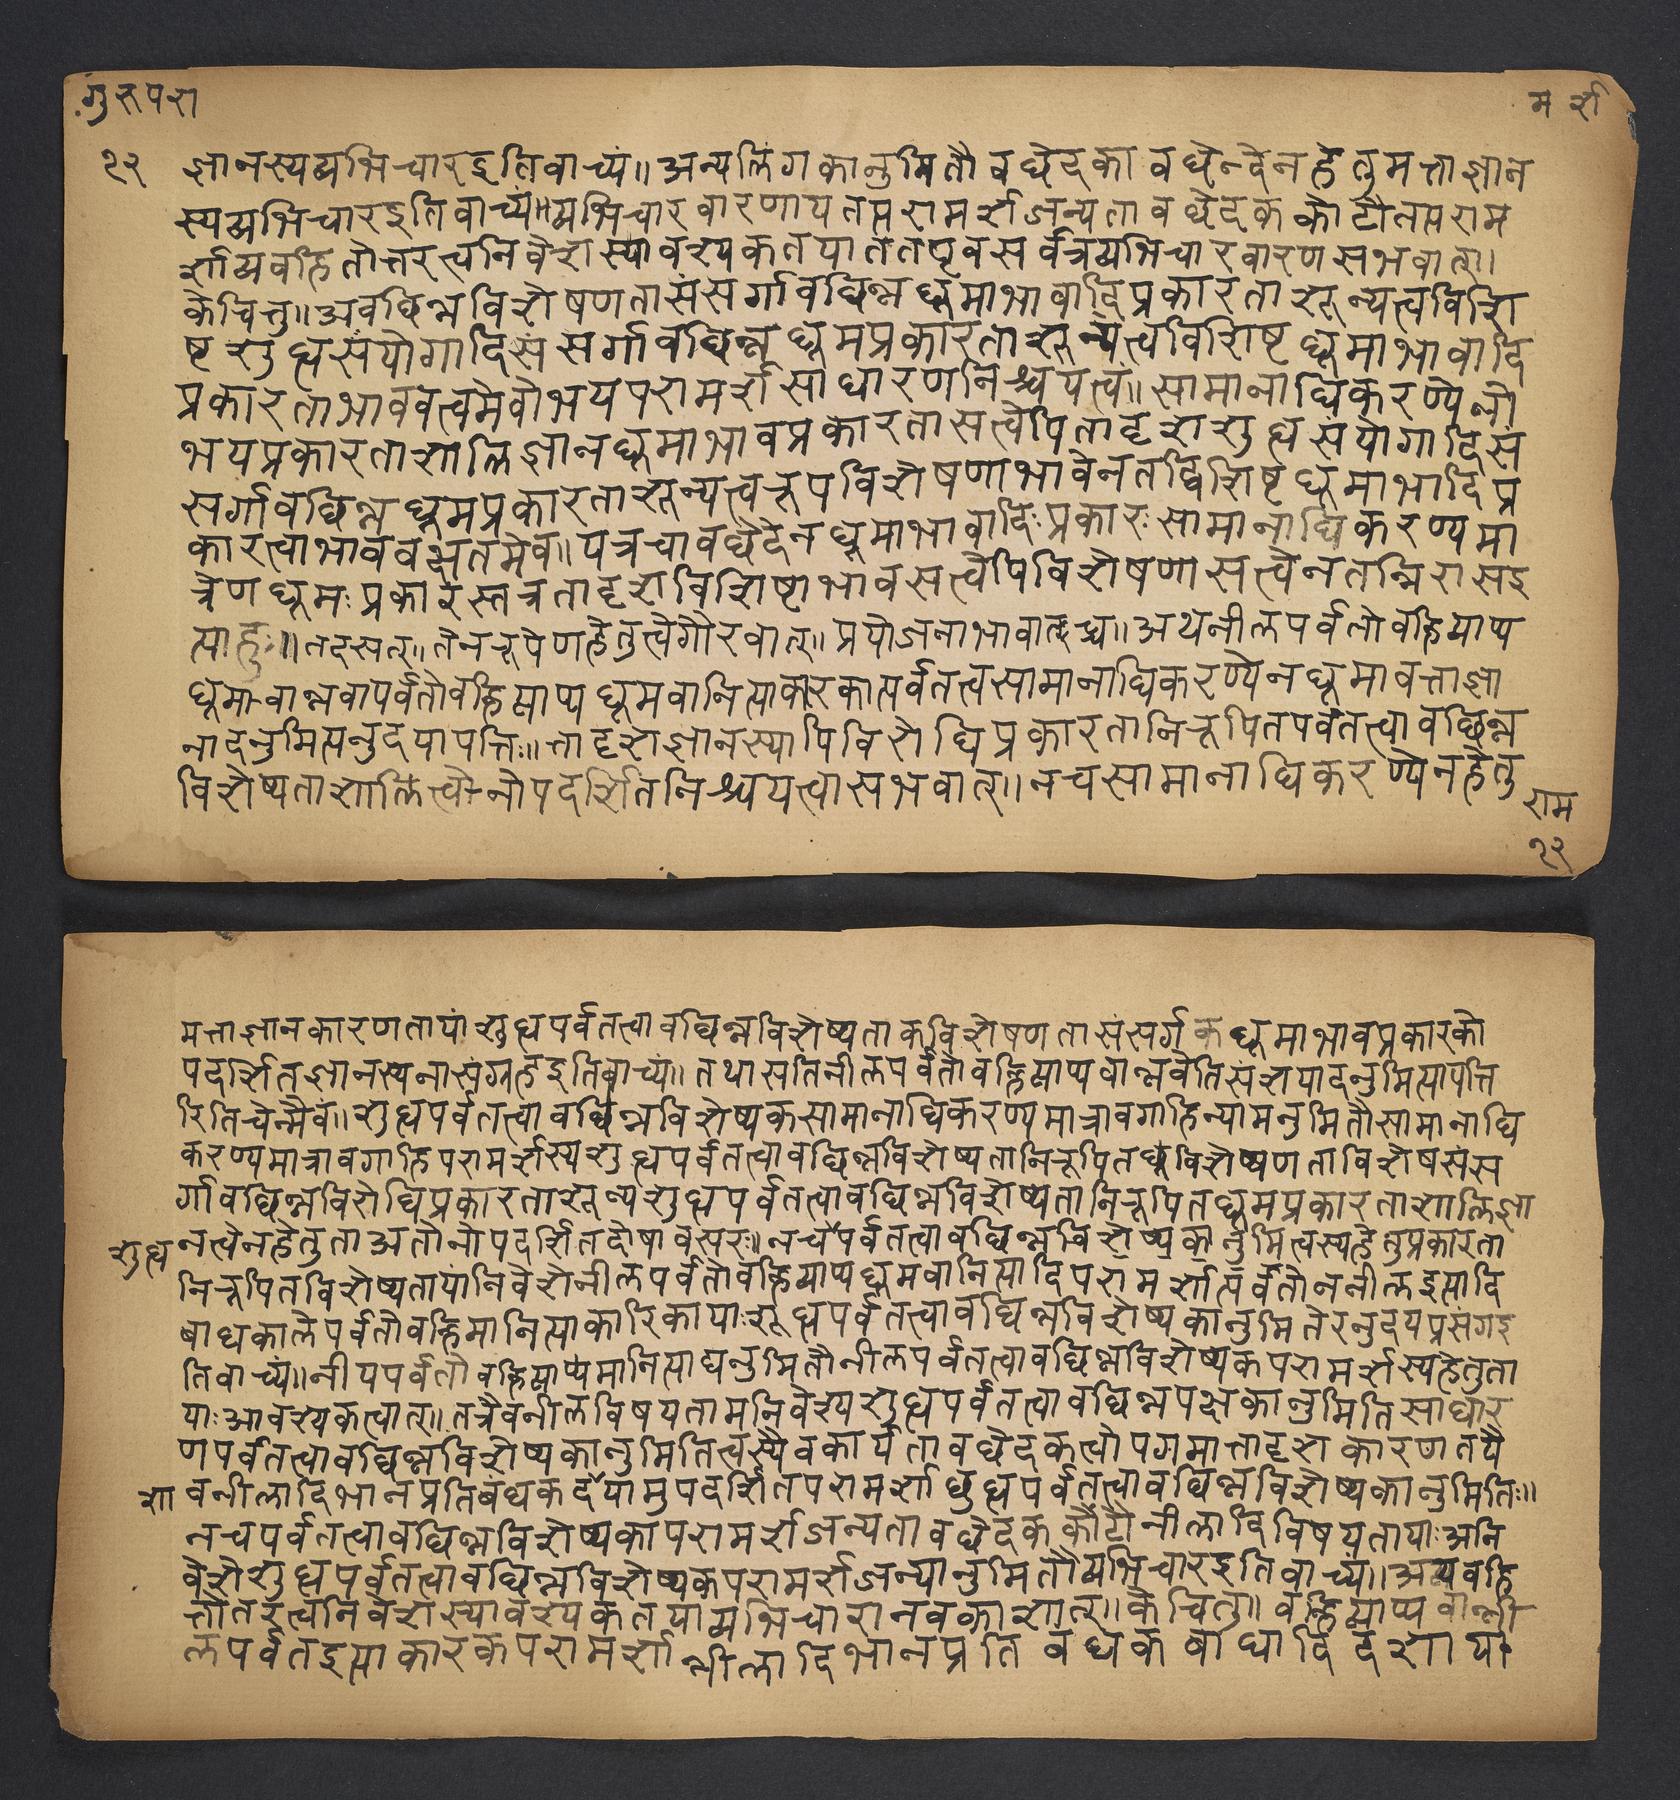 गुरुपरा
मर्श
१२
ज्ञानस्यव्यभिचारइतिवाच्यं॥अन्यलिंगकानुमितौवछेदकावछेन्देनहेतुमत्ताज्ञान
स्यव्यभिचारइतिवाच्यं॥व्यभिचारवारणायतत्परामर्शजन्यतावछेदककोटौतत्पराम
र्शाव्यवहितोत्तरत्त्वनिवेशस्यावश्यकतयाततएवसर्वत्रव्यभिचारवारणसंभवात्॥
केचित्तु॥अवछिन्नविशेषणतासंसर्गावछिन्नधूमाभावादिप्रकारताशून्यत्त्वविशि
ष्टशुद्धसंयोगादिसंसर्गावछिन्नधूमप्रकारताशून्यत्त्वविशिष्टधूमाभावादि
प्रकारताभाववत्त्वमेवोभयपरामर्शसाधारणनिश्चयत्त्वं॥सामानाधिकरण्येनो
भयप्रकारताशालिज्ञानधूमाभावप्रकारतासत्त्वेपितादृशशुद्धसंयोगादिसं
सर्गावछिन्नधूमप्रकारताशून्यत्त्वरूपविशेषणाभावेनतद्विशिष्टधूमाभादिप्र
कारत्त्वाभाववक्षतमेव॥यत्रचावछेदेनधूमाभावादिःप्रकारःसामानाधिकरण्यमा
त्रेणधूमःप्रकारस्तत्रतादृशविशिष्टाभावसत्त्वेपिविशेषणासत्त्वेनतन्निरासइ
त्याहुः॥तदसत्॥तेनरूपेणहेतुत्त्वेगौरवात्॥प्रयोजनाभावाच्च॥अथनीलपर्वतोवह्निव्याप्य
धूमावान्नवापर्वतोवह्निव्याप्यधूमवानित्याकारकात्पर्वतत्त्वसामानाधिकरण्येनधूमावत्ताज्ञा
नादनुमित्यनुदयापत्तिः॥त्तादृशज्ञानस्यापिविरोधिप्रकारतानिरूपितपर्वतत्त्वावच्छिन्न
विशेष्यताशालित्त्वेनोपदर्शितनिश्चयत्त्वासंभवात्॥नचसामानाधिकरण्येनहेतु
राम
१२
मत्ताज्ञानकारणतायांशुद्धपर्वतत्त्वावछिन्नविशेष्यताकविशेषणतासंसर्गकधूमाभावप्रकारको
पदर्शितज्ञानस्यनासंग्रहइतिवाच्यं॥तथासतिनीलपर्वतोवह्निव्याप्यवान्नवेतिसंशयादनुमित्यापत्ति
रितिचेन्मैवं॥शुद्धपर्वतत्त्वावछिन्नविशेष्यकसामानाधिकरण्यमात्रावगाहिन्यामनुमितौसामानाधि
करण्यमात्रावगाहिपरामर्शस्यशुद्धपर्वतत्त्वावछिन्नविशेष्यतानिरूपितधूविशेष्यणताविशेषसंस
र्गावछिन्नविरोधिप्रकारताशून्यशुद्धपर्वतत्त्वावछिन्नविशेष्यतानिरूपितधूमप्रकारताशालिज्ञा
नत्त्वेनहेतुताअतोनोपदर्शितदोषावसरः॥नचैपर्वतत्त्वावछिन्नविशेष्यकानुमित्त्वस्यहेतुप्रकारता
शुद्ध
निरूपितविशेष्यतायांनिवेशेनीलपर्वतोवह्निव्याप्यधूमवानित्यादिपरामर्शात्पर्वतोननीलइत्यादि
बाधकालेपर्वतोवह्निमानित्याकारिकायाःशूद्धपर्वतत्त्वावछिन्नविशेष्यकानुमितेरनुदयप्रसंगइ
तिवाच्यं॥नीयपर्वतोवह्निव्याप्यमानित्याद्यनुमितौनीलपर्वतत्त्वावछिन्नविशेष्यकपरामर्शस्यहेतुता
याःआवश्यकत्त्वात्॥तत्रैवनीलविषयतामनिवेश्यशुद्धपर्वतत्त्वावछिन्नपक्षकानुमितिसाधार
णपर्वतत्त्वावछिन्नविशेष्यकानुमितित्त्वस्यैवकार्यतावछेदकत्त्वोपगमात्तादृशकारणतयै
वनीलादिभानप्रतिबंधकदेयामुपदर्शितपरामर्शाछुद्धपर्वतत्त्वावछिन्नविशेष्यकानुमितिः॥
शा
नचपर्वतत्त्वावछिन्नविशेष्यकापरामर्शजन्यतावछेदककोटौनीलादिविषयतायाःअनि
वेशेशुद्धपर्वतत्त्वावछिन्नविशेष्यकपरामर्शजन्यानुमितौव्यभिचारइतिवाच्यं॥अव्यवहि
त्तोतरत्त्वनिवेशस्यावश्यकतयाव्यभिचारानवकाशात्॥केचित्तु॥वह्निव्याप्यवान्नी
लपर्वतइत्याकारकपरामर्शान्नीलादिभानप्रतिबंधकबाधादिदशायां